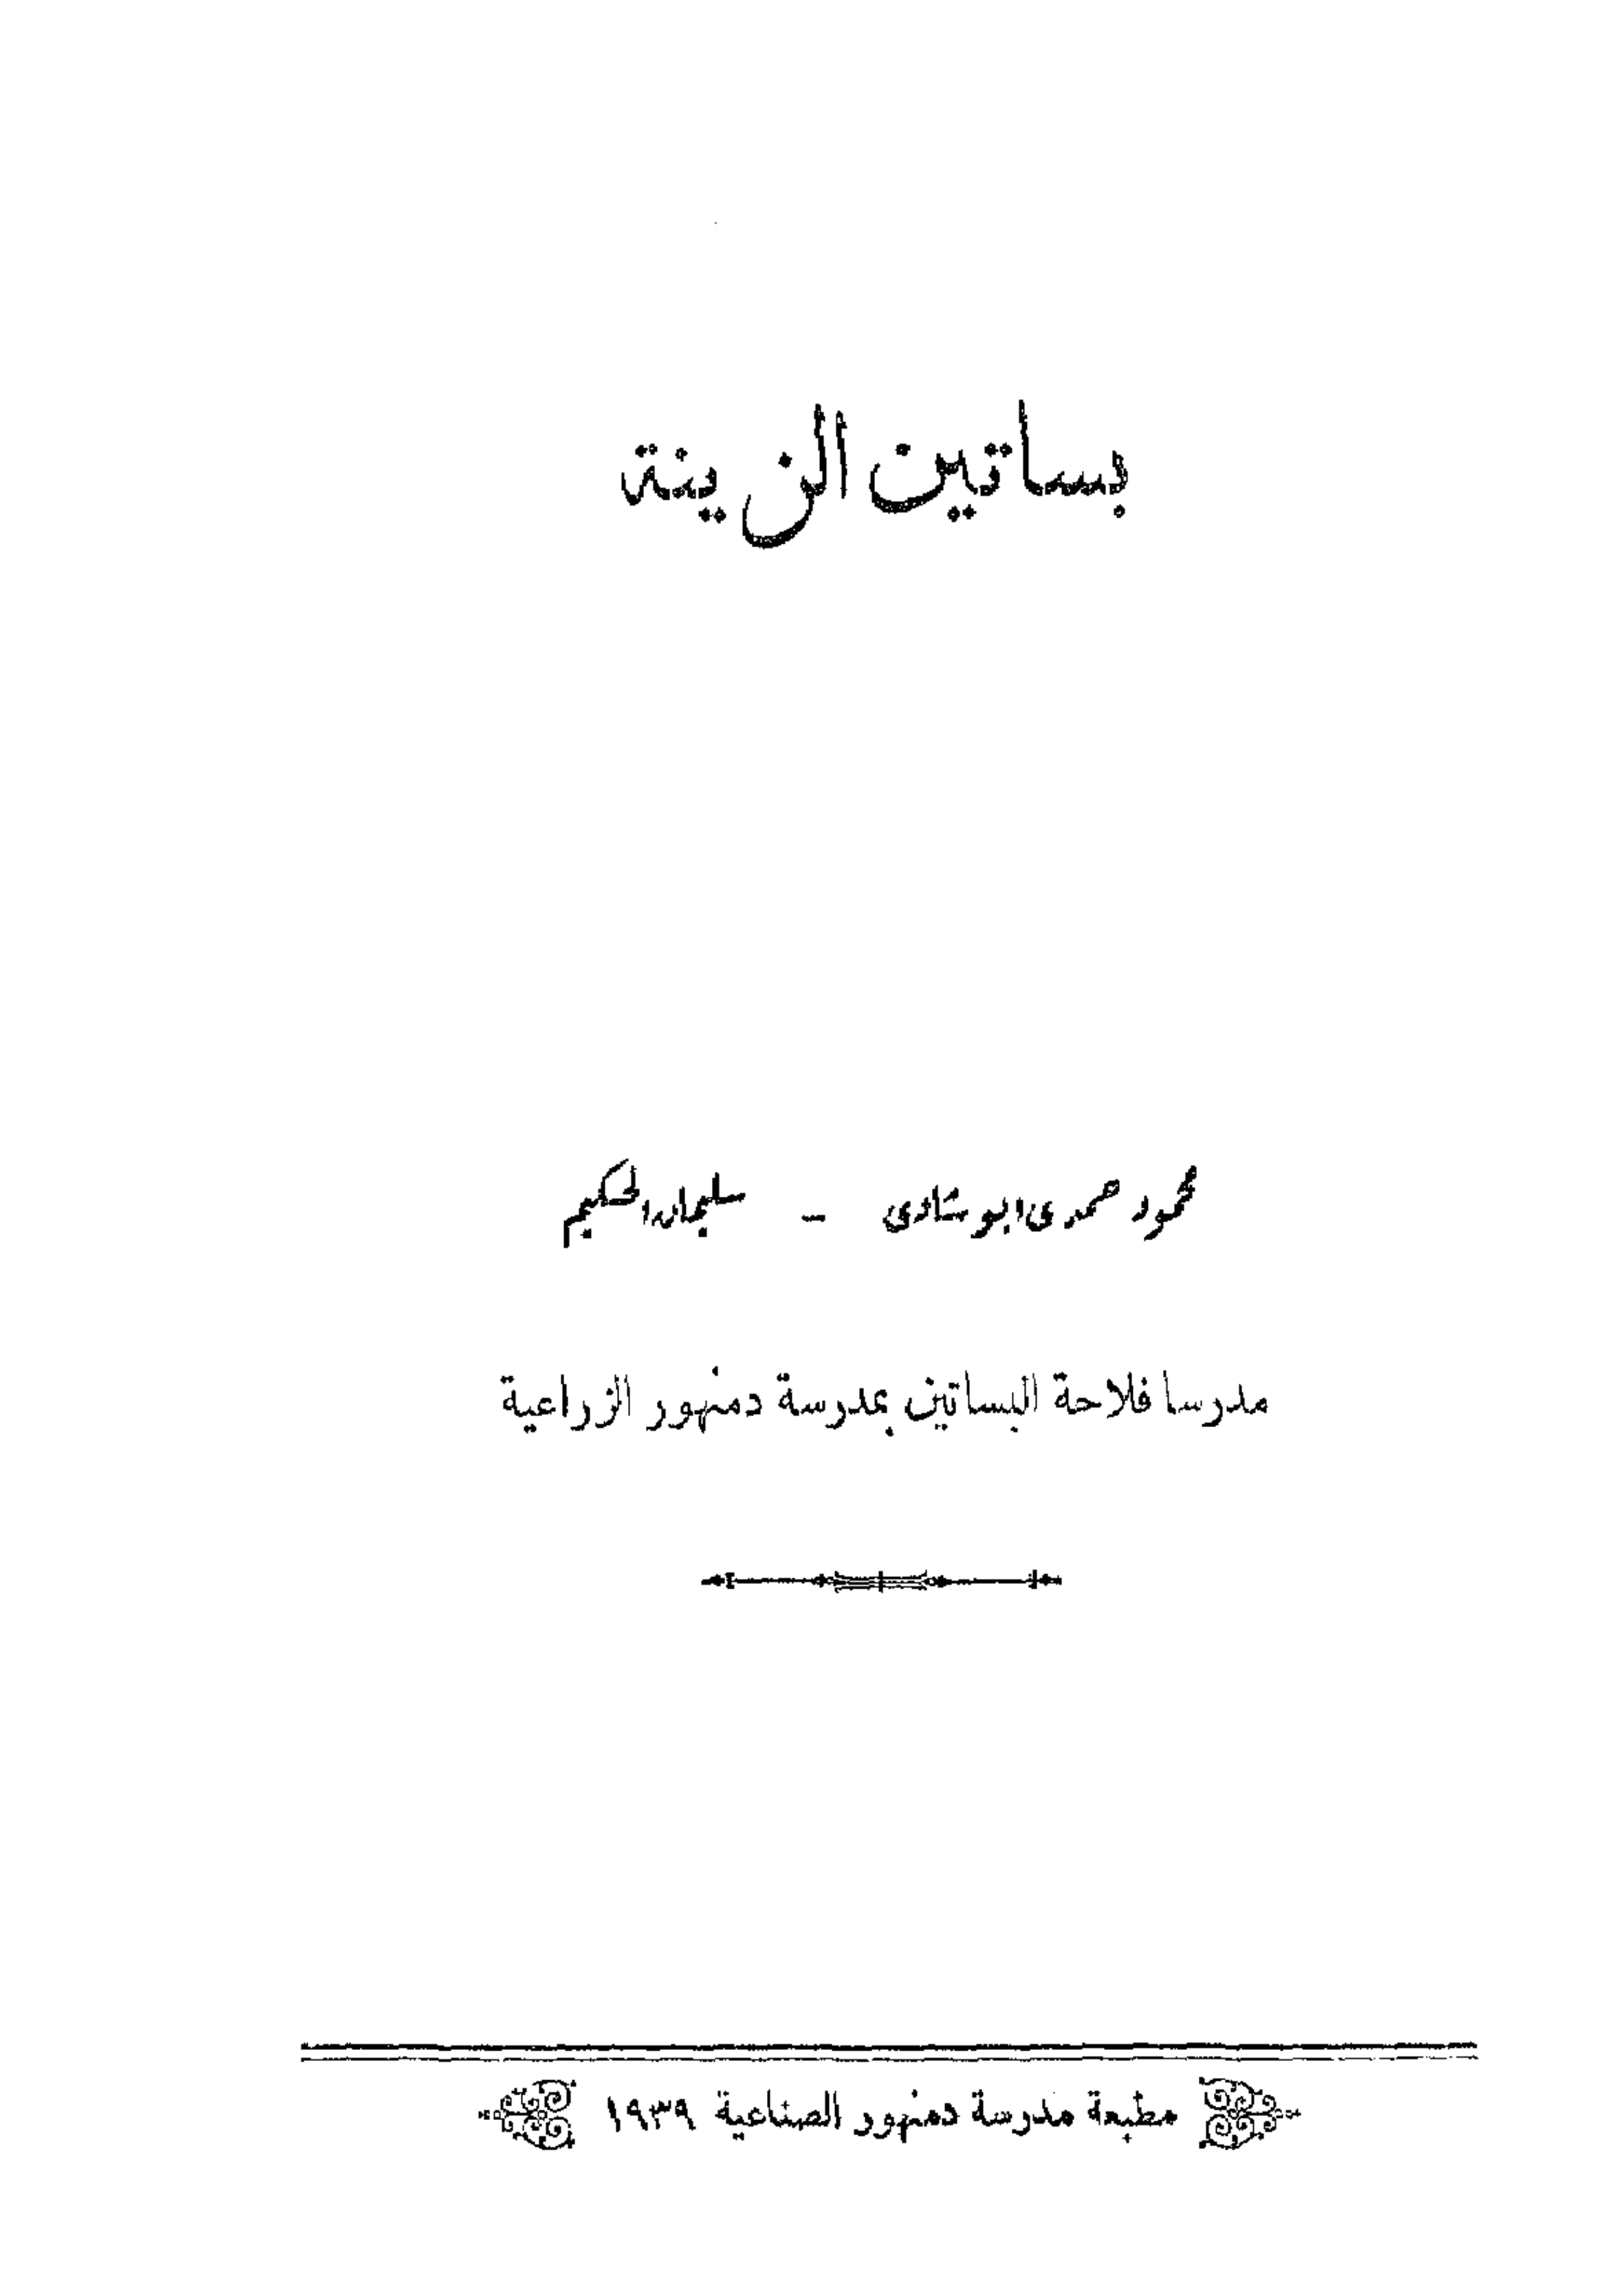 بساتين الزينة
محمود حمدى ابو شادى - سليمان الحكيم
مدرسا فلاحة البساتين بمدرسة دمنهور الزراعية
مطبعة مدرسة دمنهور الصناعية ١٩٣٩